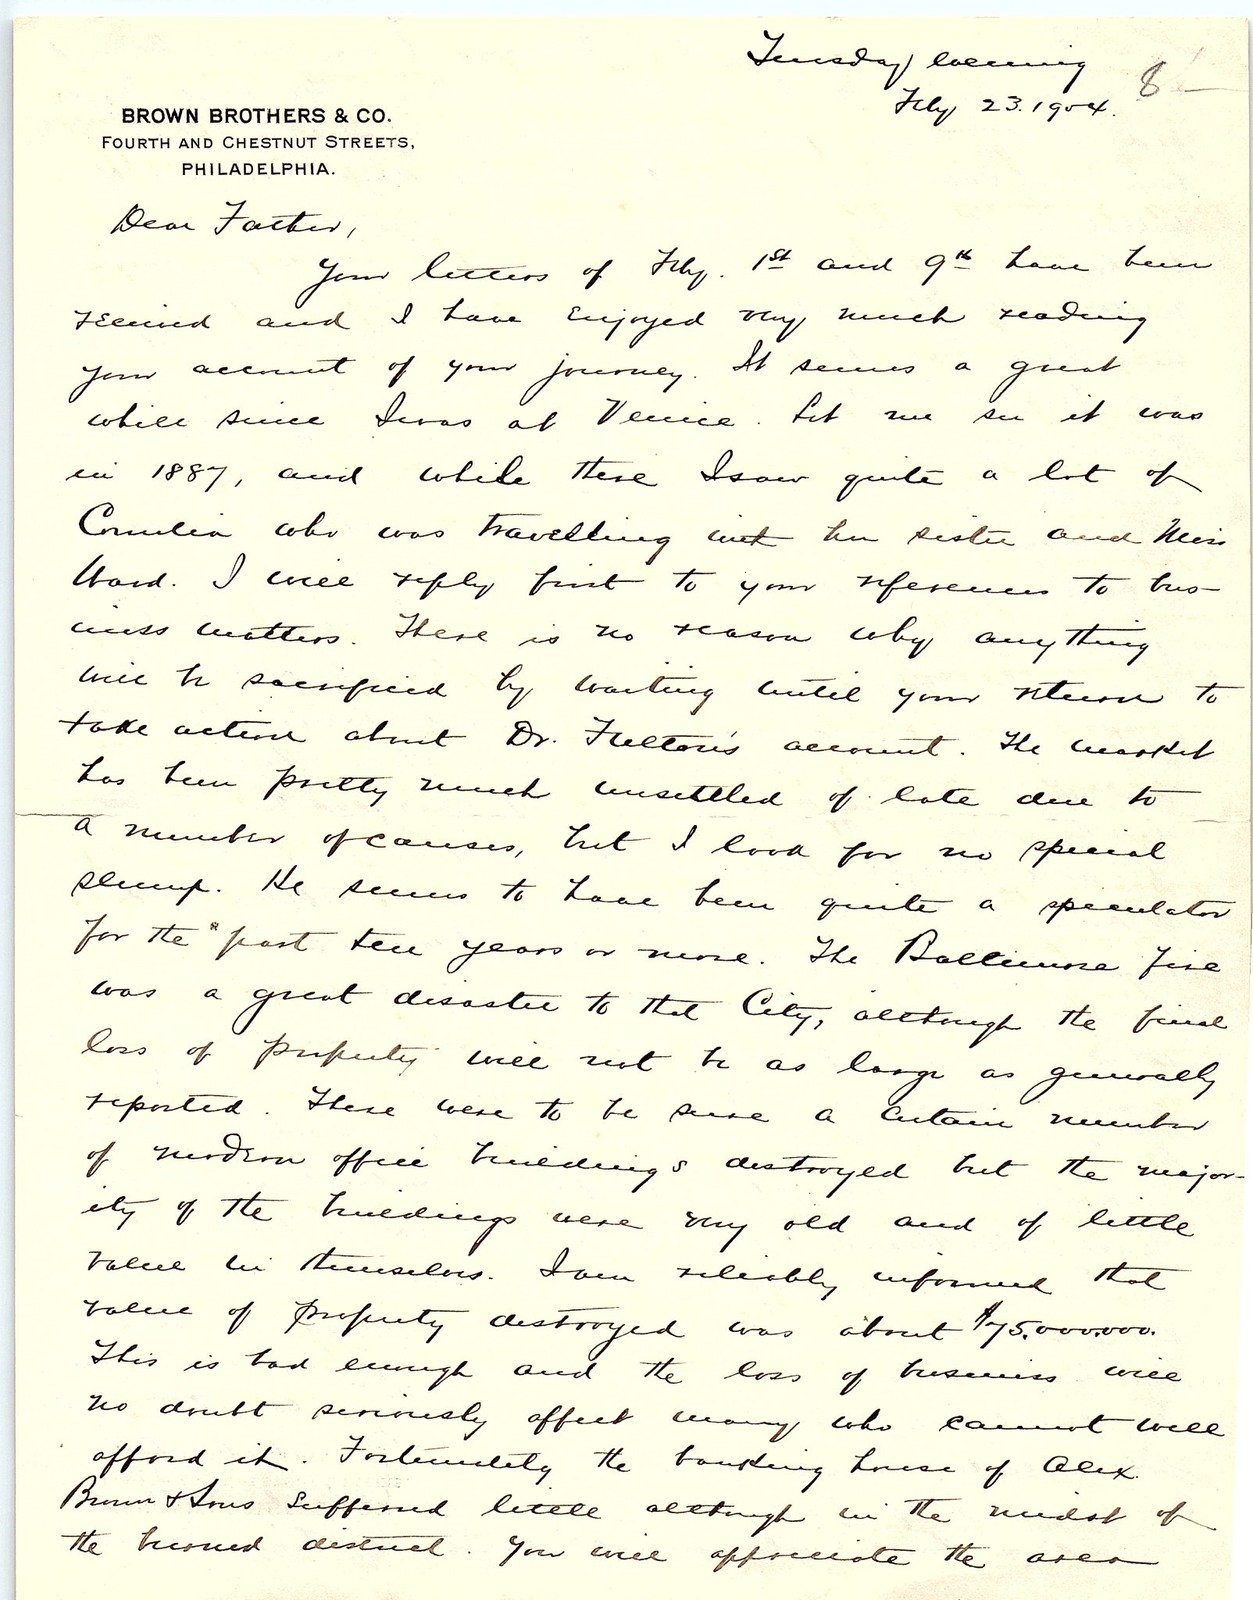 Tuesday evening
Feby 23. 1904.
8
BROWN BROTHERS & CO.
FOURTH AND CHESTNUT STREETS,
PHILADELPHIA.
Dear Father,
Your letters of Feby. 1st and 9th have been
received and I have enjoyed very much reading
your account of your journey. It seems a great
while since I was at Venice. Let me see it was
in 1887, and while there I saw quite a lot of
Cornelia who was travelling with her sister and Miss
Ward. I will reply first to your references to bus-
iness matters. There is no reason why anything
will be sacrificed by waiting until your return to
take action about Dr. Fulton's account. The market
has been pretty much unsettled of late due to
a number of causes, but I look for no special
slump. He seems to have been quite a speculator
for the past ten years or more. The Baltimore fire
was a great disaster to that City, although the final
loss of property will not be as large as generally
reported. There were to be sure a certain number
of modern office buildings destroyed but the major-
ity of the buildings were very old and of little
value in themselves. I am reliably informed that
value of property destroyed was about $75,000,000.
This is bad enough and the loss of business will
no doubt seriously affect many who cannot well
afford it. Fortunately the banking house of Alex.
Brown & Sons suffered little although in the midst of
the burned district. You will appreciate the area